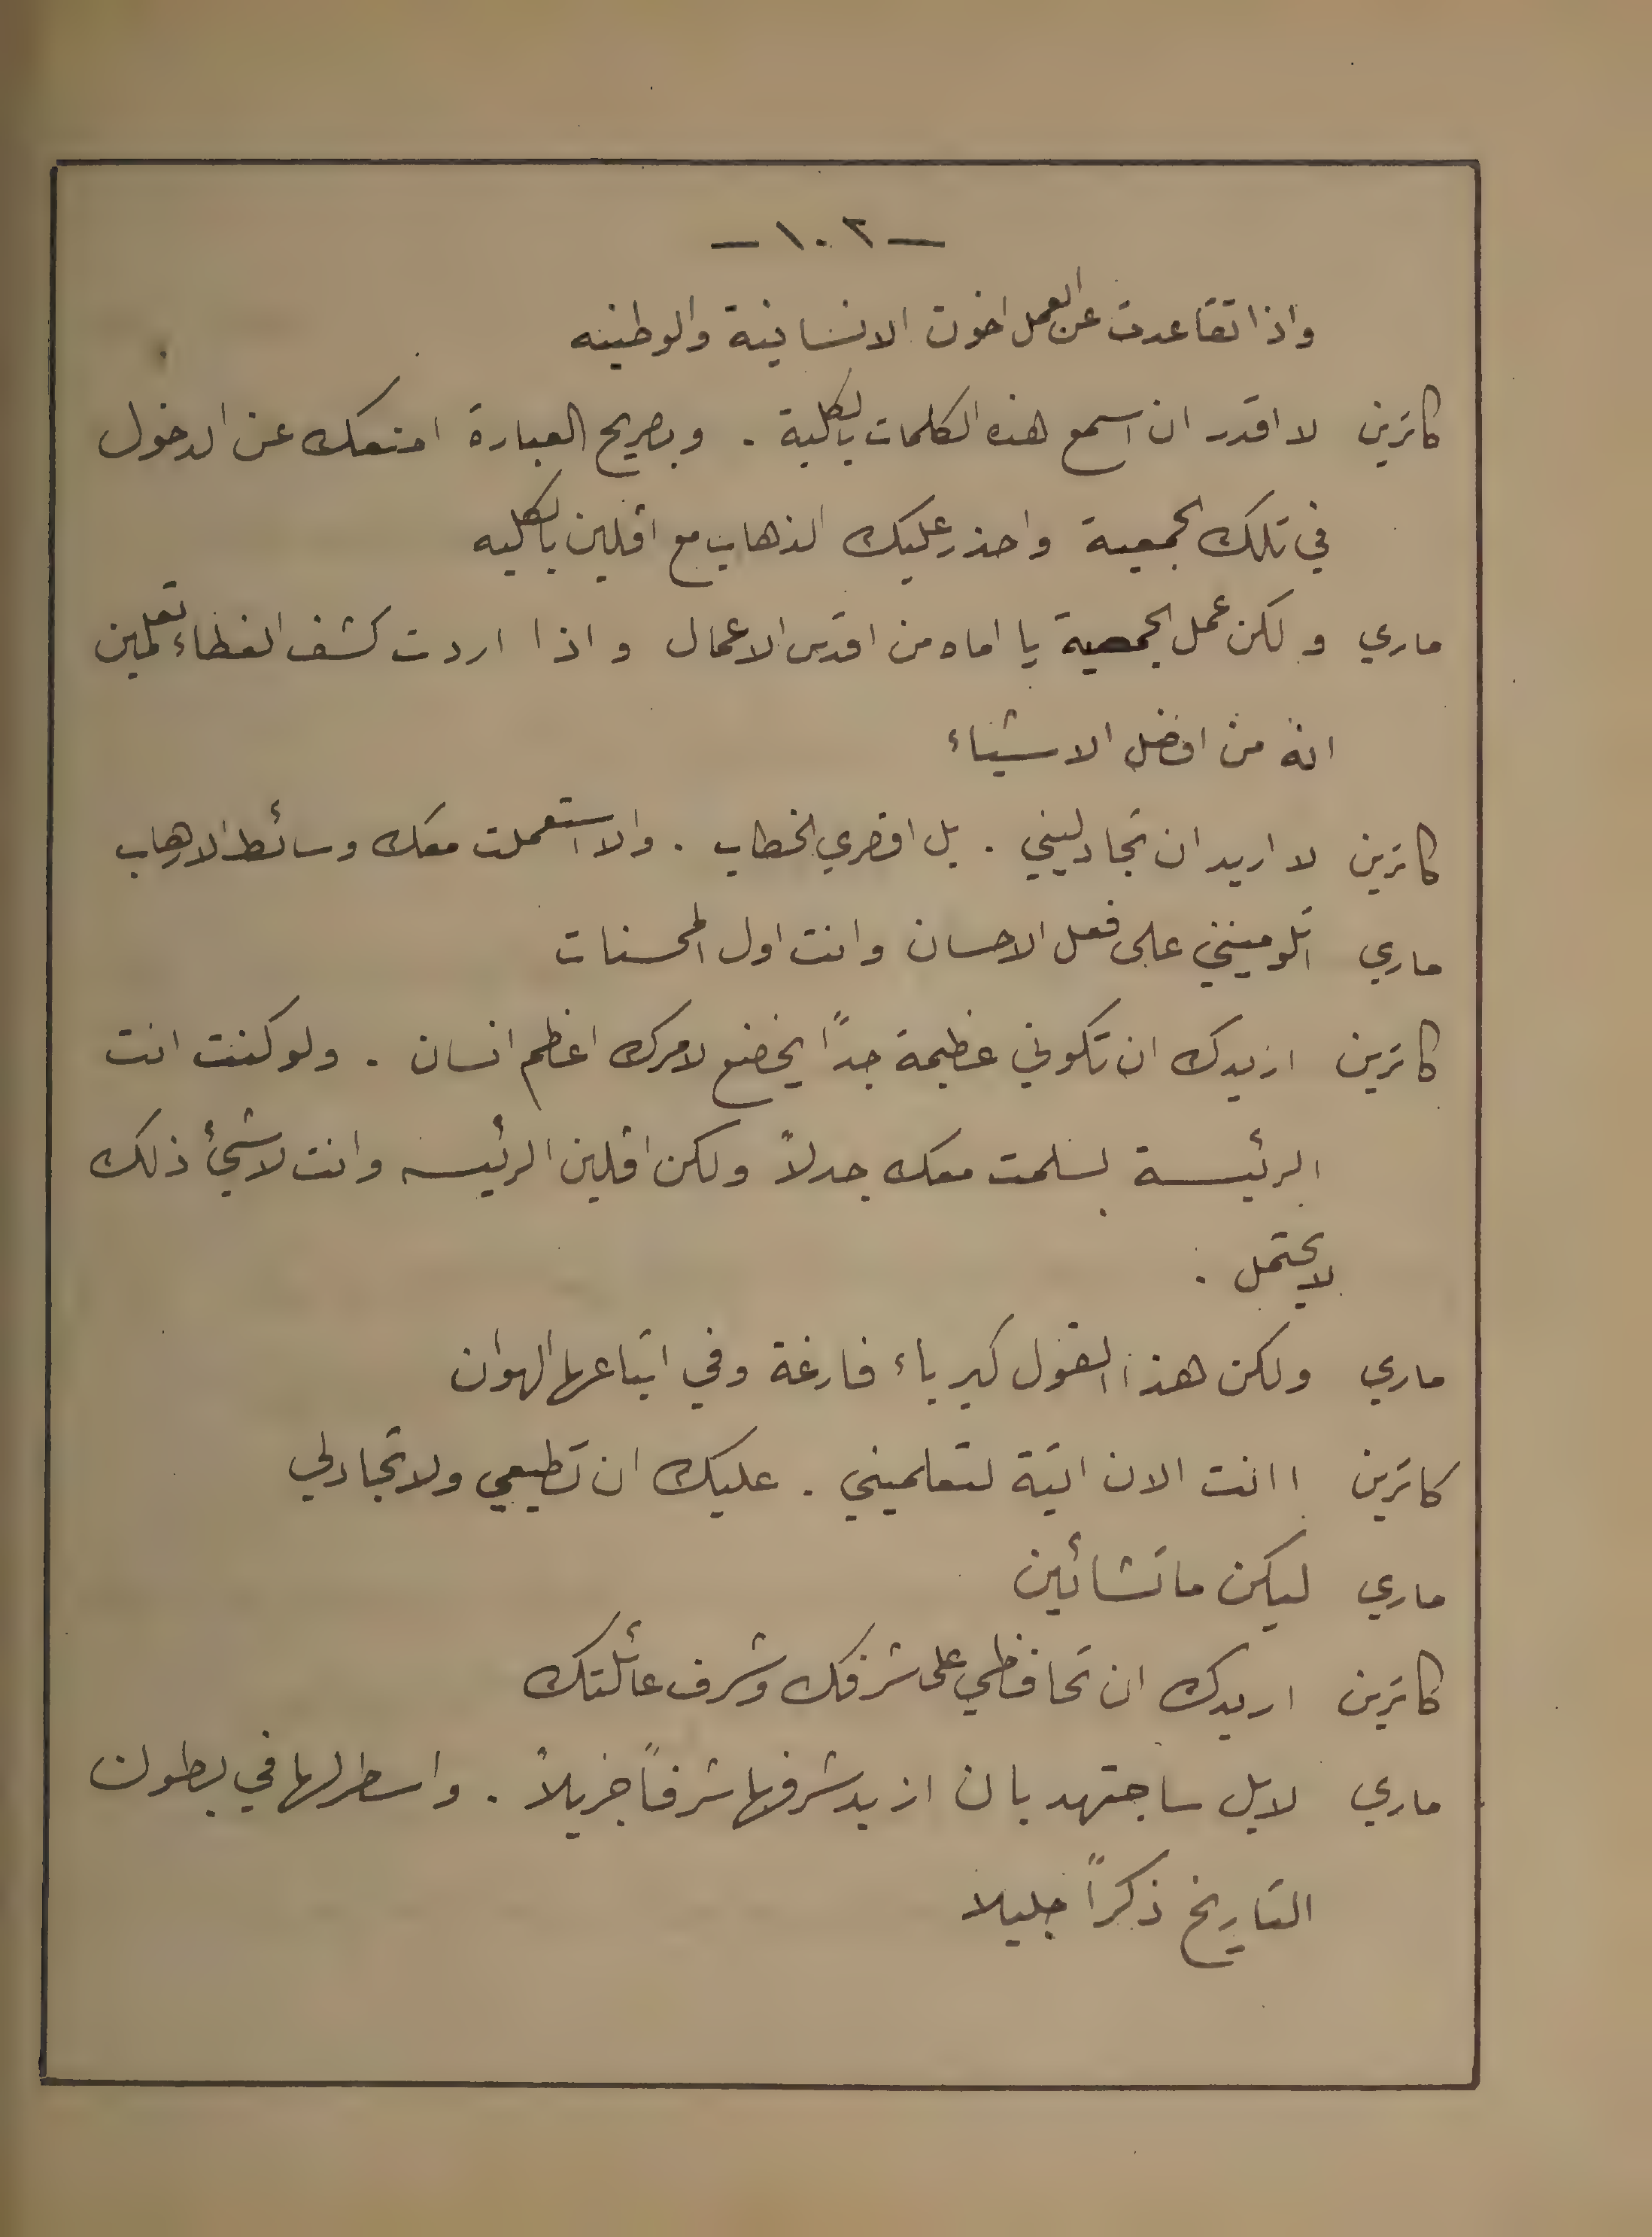 — ١٠٢ —
واذا تقاعدت عن العمل اخون الانسانية والوطنيه
كاترين لا اقدر ان اسمع هذه الكلمات بالكلية . وبصريح العبارة امنعك عن الدخول
في تلك الجمعية واحذر عليك الذهاب مع اڤلين بالكليه
ماري ولكن عمل الجمعية يا اماه من اقدس الاعمال واذا اردت كشف الغطاء تعلمين
انه من افضل الاشياء
كاترين لا اريد ان تجادليني . بل اقصري الخطاب . والا استعملت معك وسائط الارهاب
ماري اتلومينني على فعل الاحسان وانت اول المحسنات
كاترين اريدك ان تكوني عظيمة جداً يخضع لامرك اعظم انسان . ولو كنت انت
الرئيسة لسلمت معك جدلاً ولكن اڤلين الرئيسه وانت لا شيئ ذلك
لا يحتمل .
ماري ولكن هذا القول كبرياء فارغة وفي اتباعها الهوان
كاترين اانت الان اتية لتعلميني . عليك ان تطيعي ولا تجادلي
ماري ليكن ما تشائين
كاترين اريدك ان تحافظي على شرفك وشرف عائلتك
ماري لا بل ساجتهد بان ازيد شرفها شرفاً جزيلاً . واسطر لها في بطون
التاريخ ذكراً جليلا